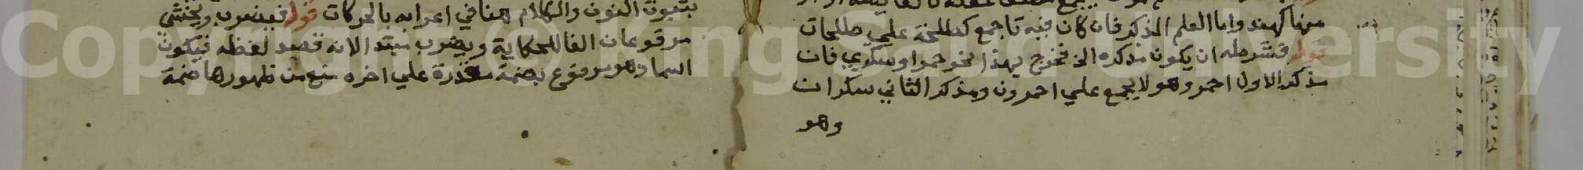 منها كهند واما العلم المذكر فان كان فيه تا جمع كطلحة علي طلحات
قوله فشرطه ان يكون مذكره الخ يخرج بهذا نحو حمرا وسكري فان
مذكر الاول احمر وهو لا يجمع علي احمرون ومذكر الثاني سكران
وهو
بثبوت النون والكلام هنا في اعرابه بالحركات قوله فيضرب ويخشي
مرفوعان الفا للحكاية ويضرب مبتدا لانه قصد لفظه فيكون
اسما وهو مرفوع بضمة مقدرة علي اخره منع من ظهورها ضمة